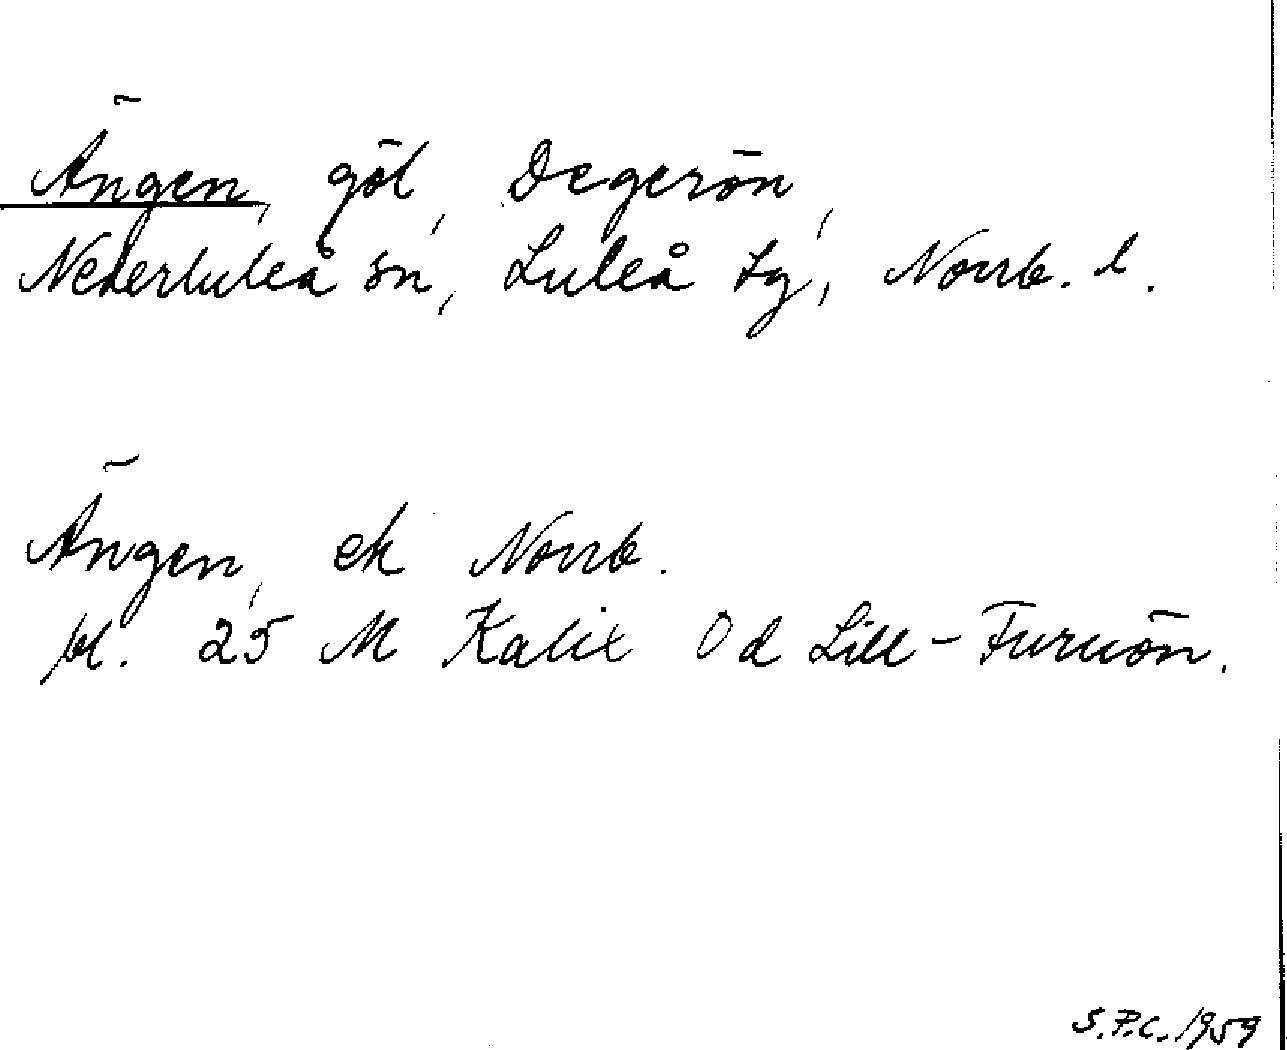 Ängen, göl, Degerön,
Nederluleå sn, Luleå tg, Norrb. l.
Ängen, ek Norrb.
bl. 25 M Kalix Od Lill-Furuön.
S.P.C. 1959